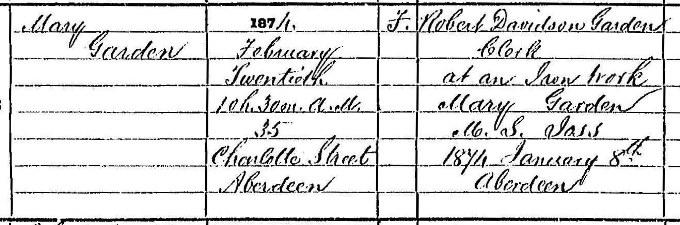 Mary
Garden
1874.
February
Twentieth
10h. 30m. A.M.
35
Charlotte Street
Aberdeen
F.
Robert Davidson Garden
Clerk
at an Iron Work
Mary Garden
M. S. Joss
1874 January 8th
Aberdeen